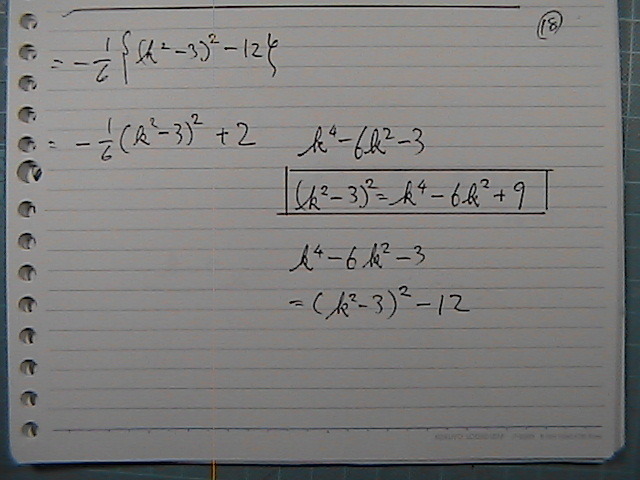 ⑱
= -1/6 {(k² - 3)² - 12}
= -1/6 (k² - 3)² + 2
k⁴ - 6k² - 3
(k² - 3)² = k⁴ - 6k² + 9
k⁴ - 6k² - 3
= (k² - 3)² - 12